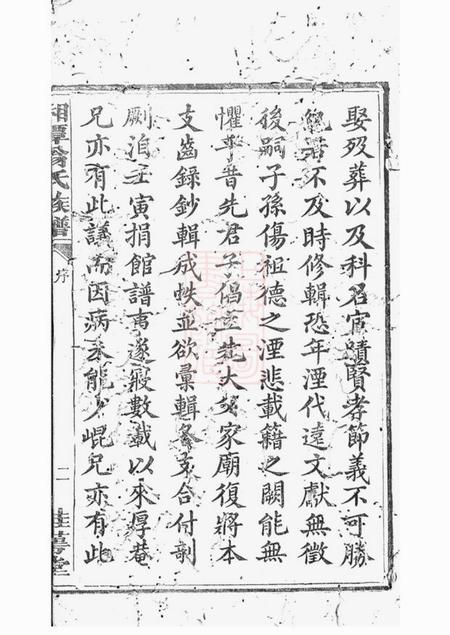 娶歿葬以及科名宦蹟賢孝節義不可勝
不及時修輯恐年湮代遠文獻無徵
後嗣子孫傷祖德之湮悲載籍之闕能無
懼乎昔先君子倡立先大父家廟復將本
支齒錄鈔輯成帙並欲彙輯各支合付剞
劂洎壬寅捐館譜事遂寢數載以來厚菴
兄亦有此議而因病未能少崐兄亦有此
湘潭翁氏族譜
序
二
堂